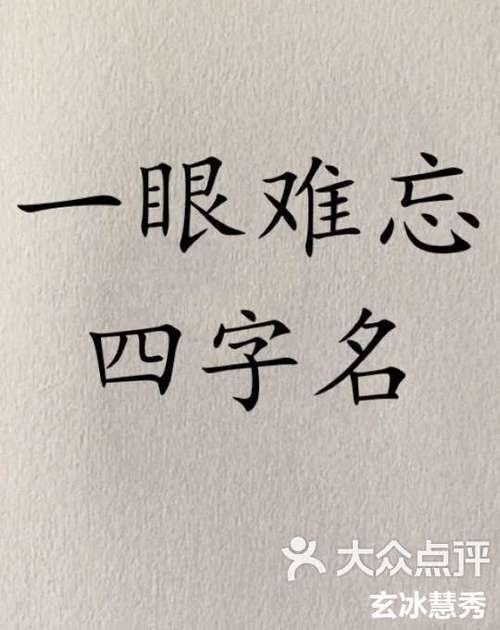 一眼难忘
四字名
大众点评
玄冰慧秀